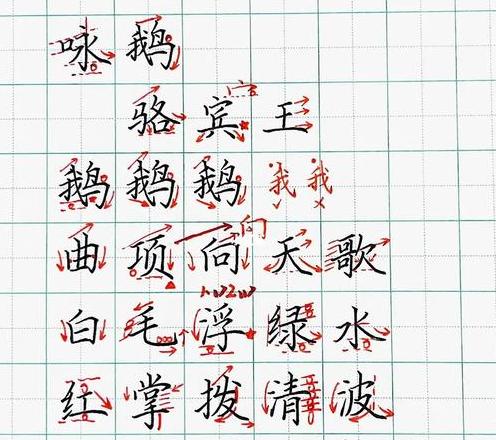 咏鹅
骆宾王
鹅鹅鹅 我 我
曲项向天歌
白毛浮绿水
红掌拨清波